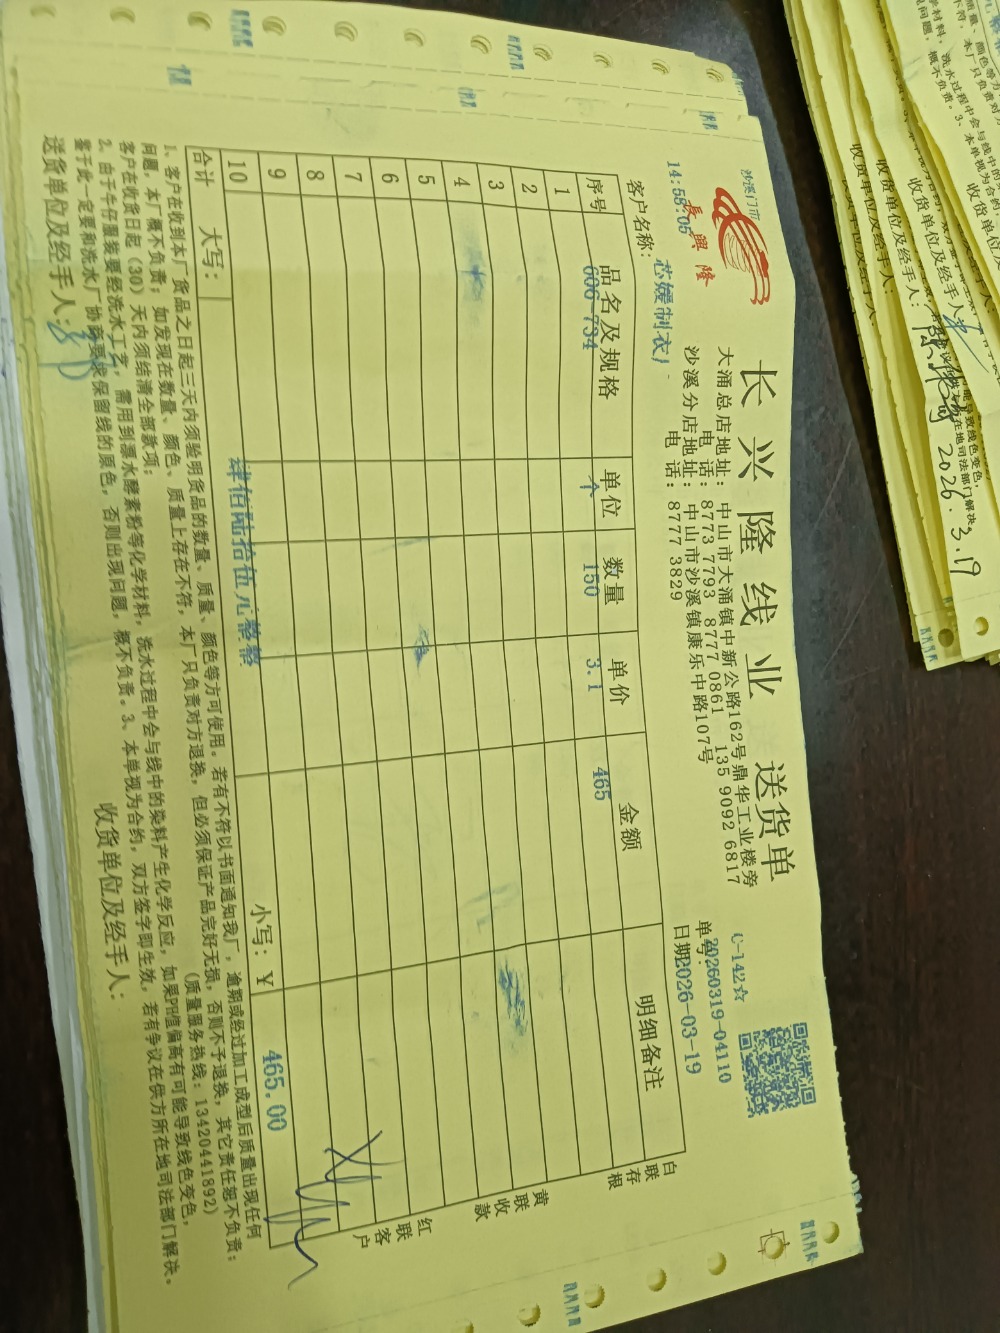 沙溪门市
長興隆
14:58:05
长兴隆线业 送货单
大涌总店地址：中山市大涌镇中新公路162号鼎华工业楼旁
电 话：8773 7793 8777 0861 135 9092 6817
沙溪分店地址：中山市沙溪镇康乐中路107号
电 话：8777 3829
C-142☆
单号:20260319-04110
日期:2026-03-19
客户名称：芯嫒制衣厂
序号 品名及规格 单位 数量 单价 金额 明细备注
1 606-734 个 150 3.1 465
2
3
4
5
6
7
8
9
10
合计 大写：肆佰陆拾伍元整 小写：¥ 465.00
白联存根
黄联收款
红联客户
1、客户在收到本厂货品之日起三天内须验明货品的数量、质量、颜色等方可使用。若有不符以书面通知我厂，逾期或经过加工成型后质量出现任何
问题，本厂概不负责；如发现在数量、颜色、质量上存在不符，本厂只负责对方退换，但必须保证产品完好无损，否则不予退换，其它责任恕不负责；
客户在收货日起（30）天内须结清全部款项； (质量服务热线：13420441892)
2、由于牛仔服装要经洗水工艺，需用到漂水酵素粉等化学材料，洗水过程中会与线中的染料产生化学反应，如果PH值偏高有可能导致线色变色，
鉴于此一定要和洗水厂协商要求保留线的原色，否则出现问题，概不负责。3、本单视为合约，双方签字即生效，若有争议在供方所在地司法部门解决。
送货单位及经手人：
收货单位及经手人：
收货单位及经手人：
收货单位及经手人：
收货单位及经手人：
收货单位及经手人：
2026.3.19